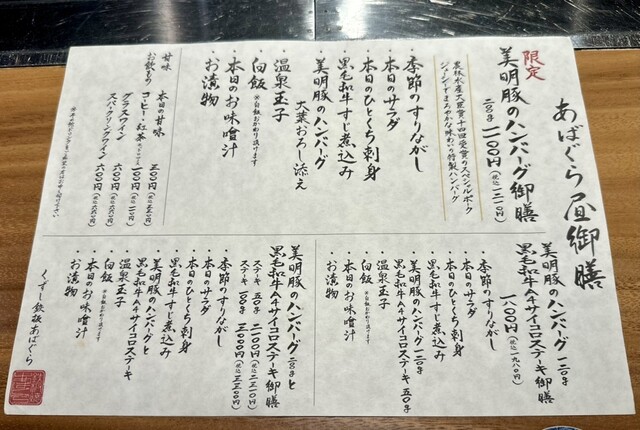 あばぐら昼御膳
限定
美明豚のハンバーグ御膳
二〇〇g 一一〇〇円(税込一二一〇円)
農林水産大臣賞十四回受賞のスペシャルポーク
ジューシーでまろやかな味わいの特製ハンバーグ
・季節のすりながし
・本日のサラダ
・本日のひとくち刺身
・黒毛和牛すじ煮込み
・美明豚のハンバーグ
大葉おろし添え
・温泉玉子
・白飯
※白飯おかわり頂けます
・本日のお味噌汁
・お漬物
甘味
本日の甘味 五〇〇円(税込五五〇円)
お飲もの
コーヒー・紅茶 一〇〇円(税込一一〇円)
グラスワイン 六〇〇円(税込六六〇円)
スパークリングワイン 六〇〇円(税込六六〇円)
美明豚のハンバーグ一二〇gと
黒毛和牛A4サイコロステーキ御膳
一八〇〇円(税込一九八〇円)
・季節のすりながし
・本日のサラダ
・本日のひとくち刺身
・黒毛和牛すじ煮込み
・美明豚のハンバーグ一二〇g
黒毛和牛A4サイコロステーキ五〇g
・温泉玉子
・白飯
※白飯おかわり頂けます
・本日のお味噌汁
・お漬物
美明豚のハンバーグ二〇〇gと
黒毛和牛A4サイコロステーキ御膳
ステーキ 五〇g 二一〇〇円(税込二三一〇円)
ステーキ 一〇〇g 三〇〇〇円(税込三三〇〇円)
・季節のすりながし
・本日のサラダ
・本日のひとくち刺身
・黒毛和牛すじ煮込み
・美明豚のハンバーグと
黒毛和牛A4サイコロステーキ
・温泉玉子
・白飯
※白飯おかわり頂けます
・本日のお味噌汁
・お漬物
くずし鉄板あばぐら